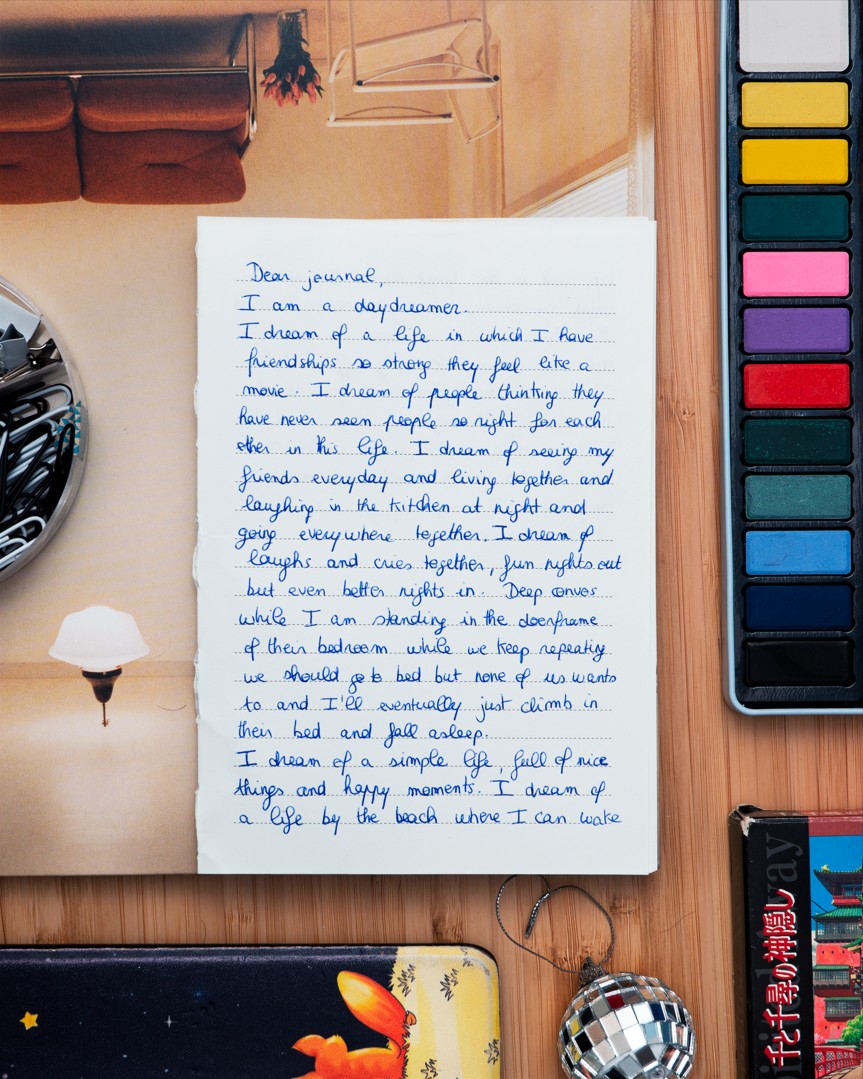 Dear journal,
I am a daydreamer.
I dream of a life in which I have
friendships so strong they feel like a
movie. I dream of people thinking they
have never seen people so right for each
other in this life. I dream of seeing my
friends everyday and living together and
laughing in the kitchen at night and
going everywhere together. I dream of
laughs and cries together, fun nights out
but even better nights in. Deep convos
while I am standing in the doorframe
of their bedroom while we keep repeating
we should go to bed but none of us wants
to and I'll eventually just climb in
their bed and fall asleep.
I dream of a simple life, full of nice
things and happy moments. I dream of
a life by the beach where I can wake
千と千尋の神隠し